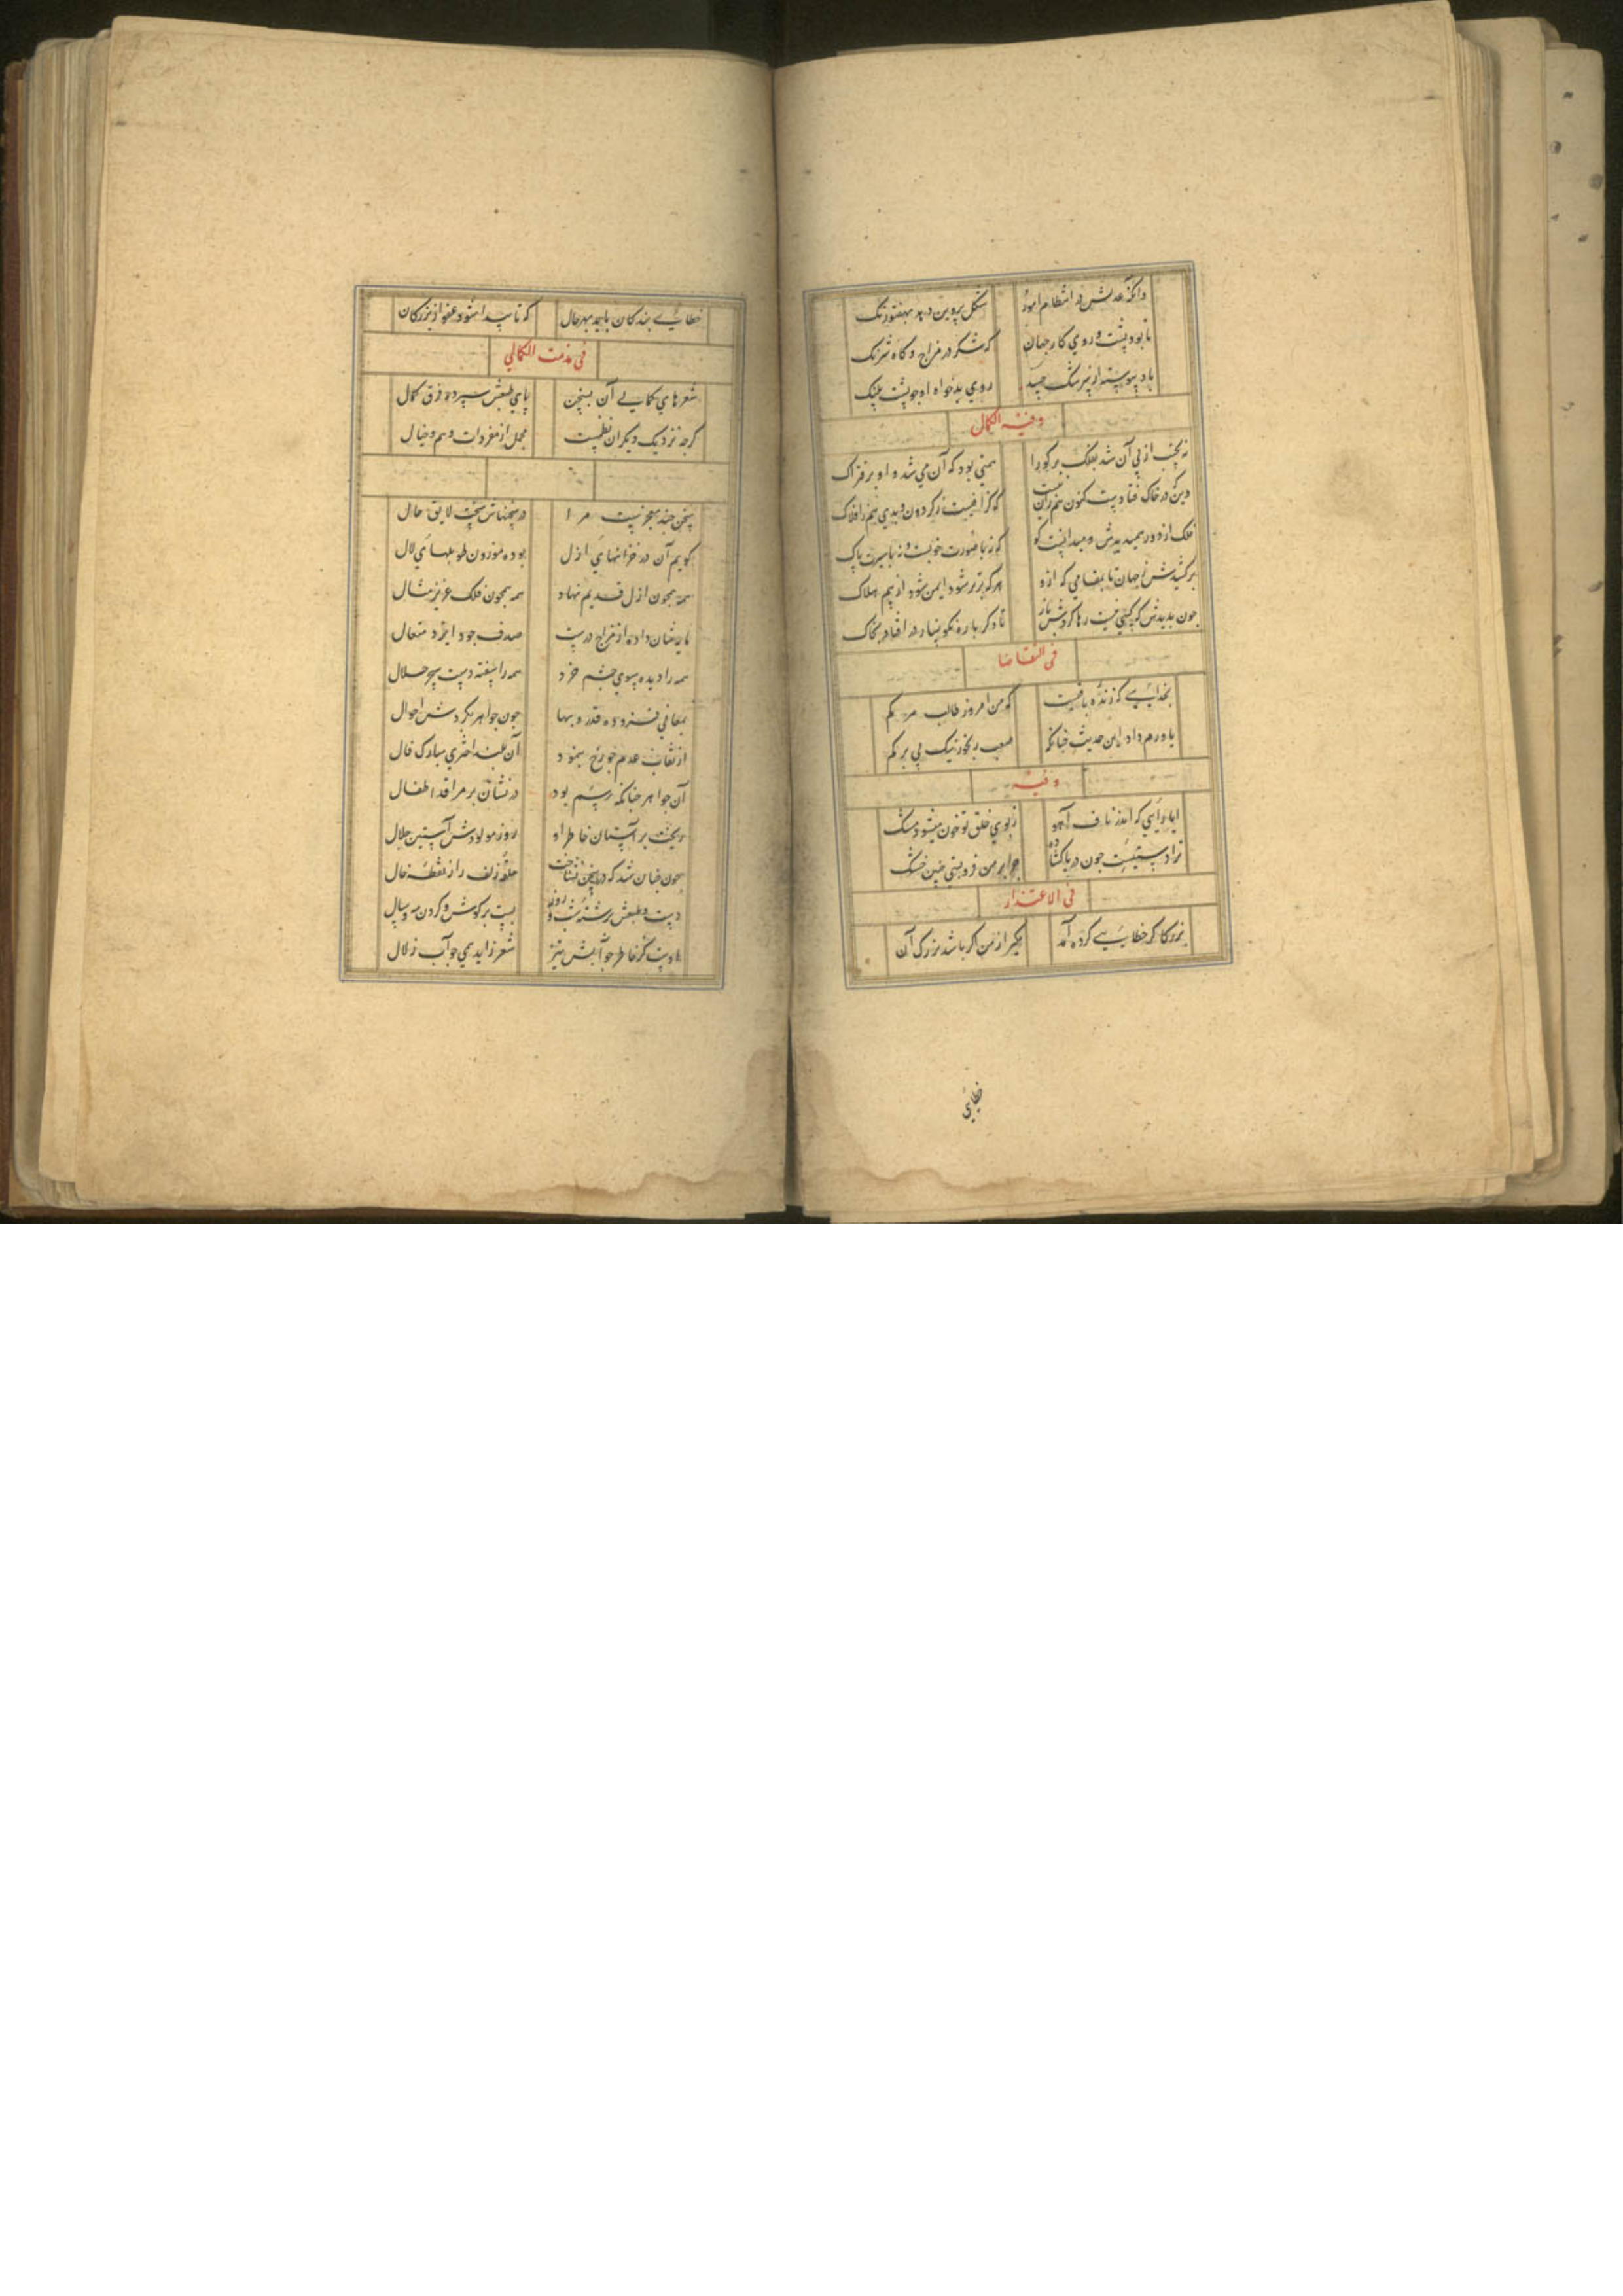 وانکه عدلش در انتظام امور شکل پروین دهد بهفتورنک
تا بود پشت و روی کار جهان که شکر در مزاج و کاه شرنک
باد پیوسته از پرشک چسد روی بدخواه او جو پشت پلنک
وفیه الکمال
نه بخب از پی آن شد بفلک بر کورا همتی بود که آن می شد و او بر فتراک
وین که در خاک فتادیت کنون هم زین نیست کو کرانیست ز کردون و بدی هم ز افلاک
فلک از دور همیدیدش و میدانست کو که نه با صورت خوبست و نه با سیرت پاک
برکشیدش ز جهان تا بمقامی که ازو هر که برتر شود ایمن شود از بیم هلاک
جون بدیدش که کسی نیست رها کردش باز تا دکر باره نکونسار در افتاد بخاک
فی التقاضا
بخدایی که زنده باقیست که من امروز طالب مرکم
یاورم داد این حدیث جنانکه صعب رنجور نیک بی برکم
وفیه
ایا رایی که اندر ناف آهو ز بوی خلق تو خون میشود مشک
ترا دستیست جون دریا کشاده جرا بر من فرو بستی جنین خشک
فی الاعتذار
بزرکا کر خطایی کرده آمد مکیر از من اکر باشد بزرک آن
خطایی
خطایی بندکان باید بهر حال که تا پیدا شود عفو از بزرکان
فی مذمت الکمالی
شعرهای کمالی آن بسخن پای طبعش سپرده فرق کمال
کرجه نزدیک دیکران نظمست مجمل از مفردات وهم و خیال
سخن جند معجزیست مرا در سخنهاش سخت لایق حال
کویم آن در خزانهای ازل بوده موزون طویلهای لال
همه همجون ازل قدیم نهاد همه همجون فلک عزیز مثال
مایه شان داده از مزاج درست صدف جود ایزد متعال
همه را دیده بسوی جشم خرد همه را سفته دست سحر حلال
بمعانی فزوده قدر و بها جون جواهر بکردش احوال
از نقاب عدم جو رخ بنمود آن بلند اختری مبارک فال
آن جواهر جنانکه رسم بود در نشان بر مراقد اطفال
ریخت بر آستان خاطر او روز مولودش آستین جلال
جون جنان شد که در سخن بشناخت حلقه زلف را ز نقطه خال
دست طبعش برشته شب و روز بست بر کوش و کردن مه و سال
هاویست کر خاطر جو آتش تیز شعر زاید همی جو آب زلال